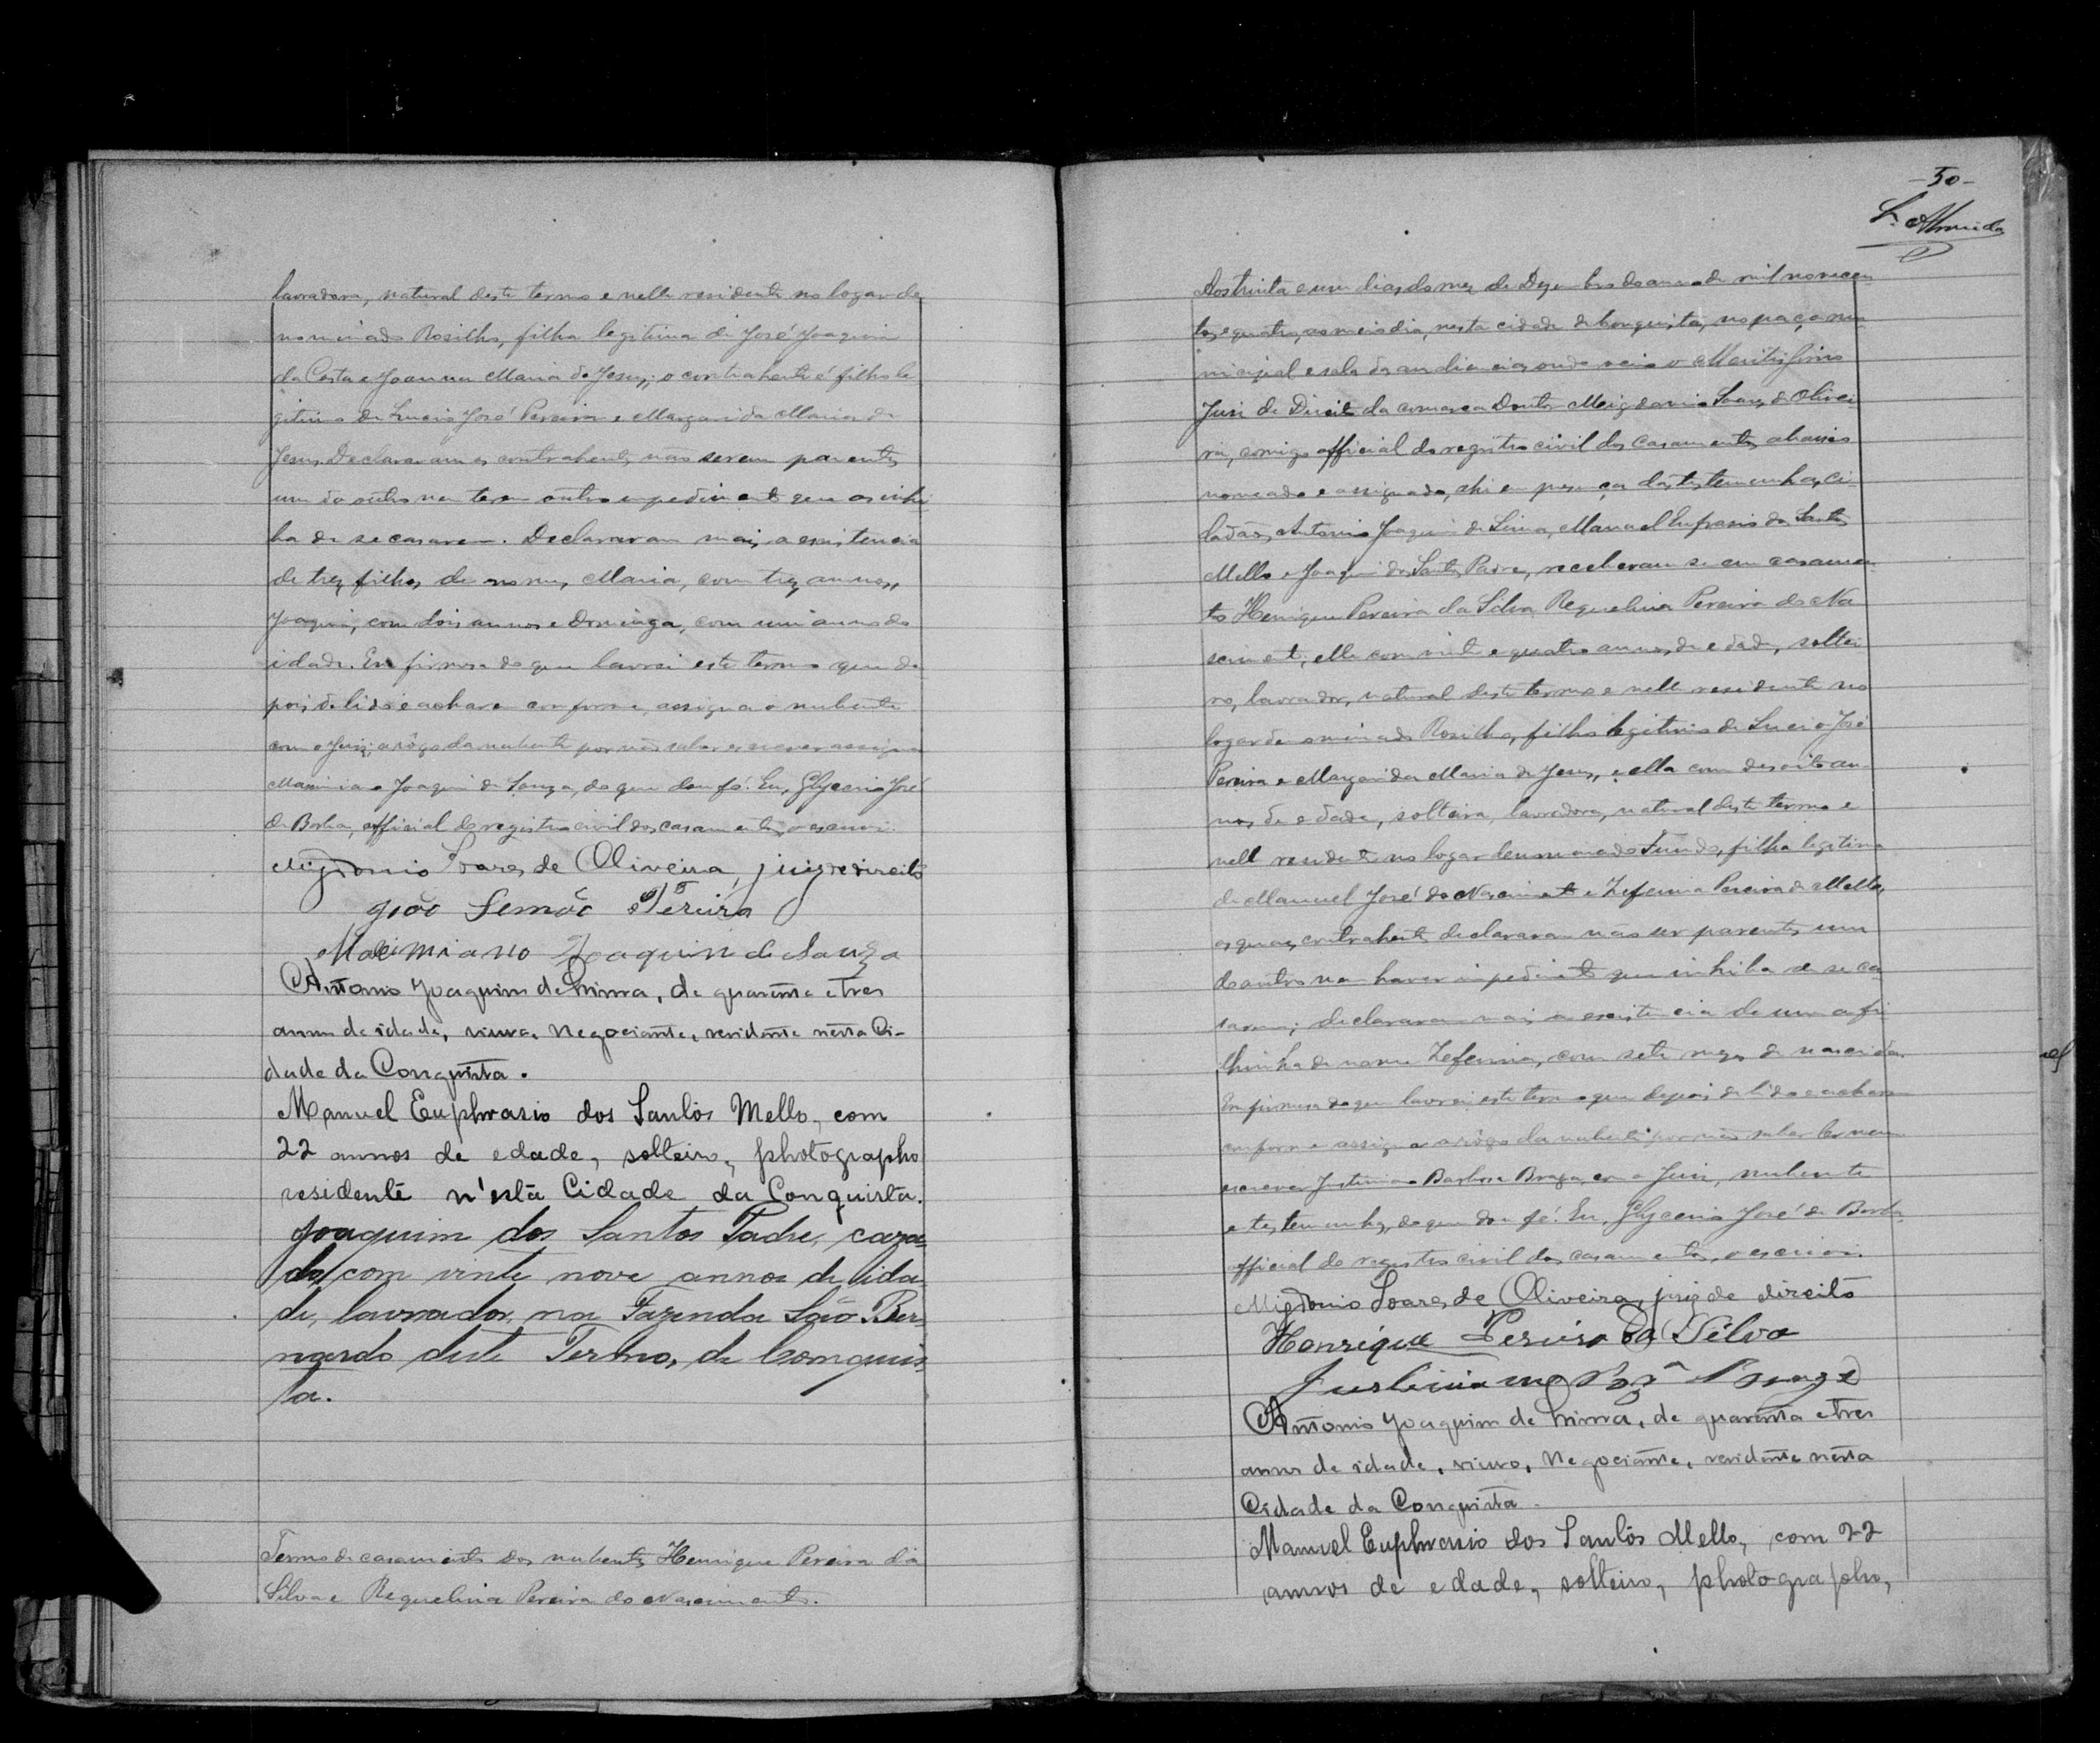 lavradora, natural deste termo e nelle residente no logar de
nominado Rosilho, filha legitima de José Joaquim
da Costa e Joanna Maria de Jesus; o contrahente é filho le
gitimo de Lucio José Pereira e Margarida Maria de
Jesus. Declararam os contrahentes não serem parentes
um do outro nem terem outro impedimento que os inhi
ba de se casarem. Declararam mais a existencia
de tres filhos de nomes Maria, com tres annos,
Joaquim, com dois annos e Dominga, com um anno de
idade. Em firmesa do que lavrei este termo que de
pois de lido e acharem conforme, assigna o nubente
com o Juiz; a rôgo da nubente por não saber escrever assigna
Maximiano Joaquim de Souza, do que dou fé. Eu, Glycerio José
de Borba, official do registro civil dos casamentos, o escrevi.
Migdonio Soares de Oliveira, juiz de direito
João Semão Pereira
Maximiano Joaquim de Souza
Antonio Joaquim de Lima, de quarenta e tres
annos de idade, viuvo, Negociante, residente nesta Ci-
dade da Conquista.
Manuel Euphrasio dos Santos Mello, com
22 annos de edade, solteiro, photographo
residente n'esta Cidade da Conquista.
Joaquim dos Santos Padre, caza-
do, com vinte nove annos de ida-
de, lavrador, na Fazenda São Ber-
nardo deste Termo, da Conquis-
ta.
Termo de casamento dos nubentes Henrique Pereira da
Silva e Requelina Pereira do Nascimento.
-50-
S. Almeida
Aos trinta e um dias do mez de Dezembro do anno de mil novecen
tos e quatro, ao meio dia, nesta cidade da Conquista, no paço mu
nicipal e sala das audiencias onde veio o Meritissimo
Juiz de Direito da comarca Doutor Migdonio Soares de Olivei
ra, comigo official do registro civil dos casamentos abaixo
nomeado e assignado, ahi em presença das testemunhas, ci-
dadãos Antonio Joaquim de Lima, Manuel Eufrasio dos Santos
Mello e Joaquim dos Santos Padre, receberam-se em casamen
to Henrique Pereira da Silva Requelina Pereira do Na
scimento, elle com vinte e quatro annos de edade, soltei
ro, lavrador, natural deste termo e nelle residente no
logar denominado Rosilho, filho legitimo de Lucio José
Pereira e Margarida Maria de Jesus, e ella com desoito an-
nos de edade, solteira, lavradora, natural deste termo e
nelle residente no logar denominado Fundo, filha legitima
de Manuel José do Nascimento e Zeferina Pereira de Mello,
os quaes contrahentes declararam não ser parentes um
do outro nem haver impedimento que inhiba de se ca
sarem; declararam mais a existencia de uma fi
lhinha de nome Zeferina, com sete mezes de nascida.
Em firmesa do que lavrei este termo que depois de lido e acharem
conforme assigna a rôgo da nubente por não saber ler nem
escrever Justiniano Barbosa Braga, com o Juiz, nubente
e testemunhas, do que dou fé. Eu, Glycerio José de Borba,
official do registro civil dos casamentos, o escrevi.
Migdonio Soares de Oliveira, juiz de direito
Henrique Pereira Da Silva
Justiniano Braga
Antonio Joaquim de Lima, de quarenta e tres
annos de idade, viuvo, Negociante, residente nesta
Cidade da Conquista.
Manuel Euphrasio dos Santos Mello, com 22
annos de edade, solteiro, photographo,